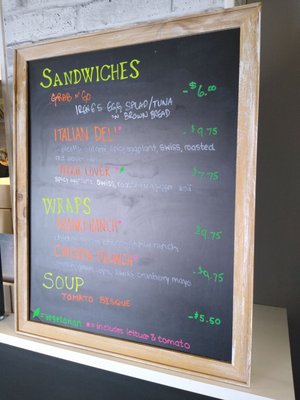 SANDWICHES
GRAB N' GO - $6.00
IRENE'S EGG SALAD/TUNA
ON BROWN BREAD
ITALIAN DELI* - $9.75
salami, spicy eggplant, swiss, roasted
red
VEGGIE LOVER* - $7.75
spicy eggplant, swiss, roasted
WRAPS
RANCH* - $9.75
ranch
CRUNCH* - $9.75
swiss, cranberry mayo
SOUP
TOMATO BISQUE - $5.50
=vegetarian *= includes lettuce & tomato